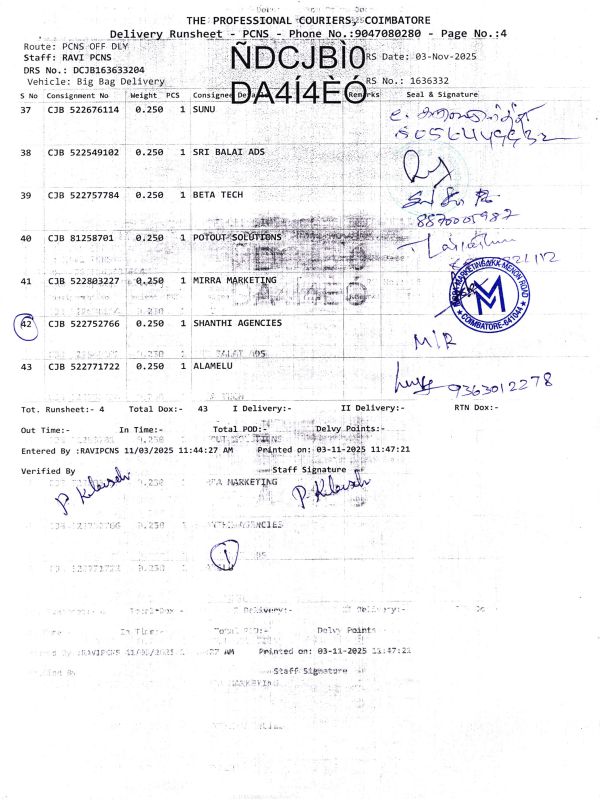 THE PROFESSIONAL COURIERS, COIMBATORE
Delivery Runsheet - PCNS - Phone No.:9047080280 - Page No.:4
Route: PCNS OFF DLY
Staff: RAVI PCNS
RS Date: 03-Nov-2025
DRS No.: DCJB163633204
Vehicle: Big Bag Delivery
RS No.: 1636332
ÑDCJBÌ0
DA4Í4ÈÓ
S No Consignment No Weight PCS Consignee Details Remarks Seal & Signature
37 CJB 522676114 0.250 1 SUNU
38 CJB 522549102 0.250 1 SRI BALAI ADS
39 CJB 522757784 0.250 1 BETA TECH
8870005987
40 CJB 81258701 0.250 1 POTOUT SOLUTIONS
41 CJB 522803227 0.250 1 MIRRA MARKETING
COIMBATORE-641044
42 CJB 522752766 0.250 1 SHANTHI AGENCIES
M/R
43 CJB 522771722 0.250 1 ALAMELU
9363012278
Tot. Runsheet:- 4 Total Dox:- 43 I Delivery:- II Delivery:- RTN Dox:-
Out Time:- In Time:- Total POD:- Delvy Points:-
Entered By :RAVIPCNS 11/03/2025 11:44:27 AM Printed on: 03-11-2025 11:47:21
Verified By Staff Signature
MARKETING
0.250 AGENCIES
1
I Delivery:- Delivery:-
In Time:- Total POD:- Delvy Points
:RAVIPCNS 11/03/2025 :27 AM Printed on: 03-11-2025 11:47:21
Staff Signature